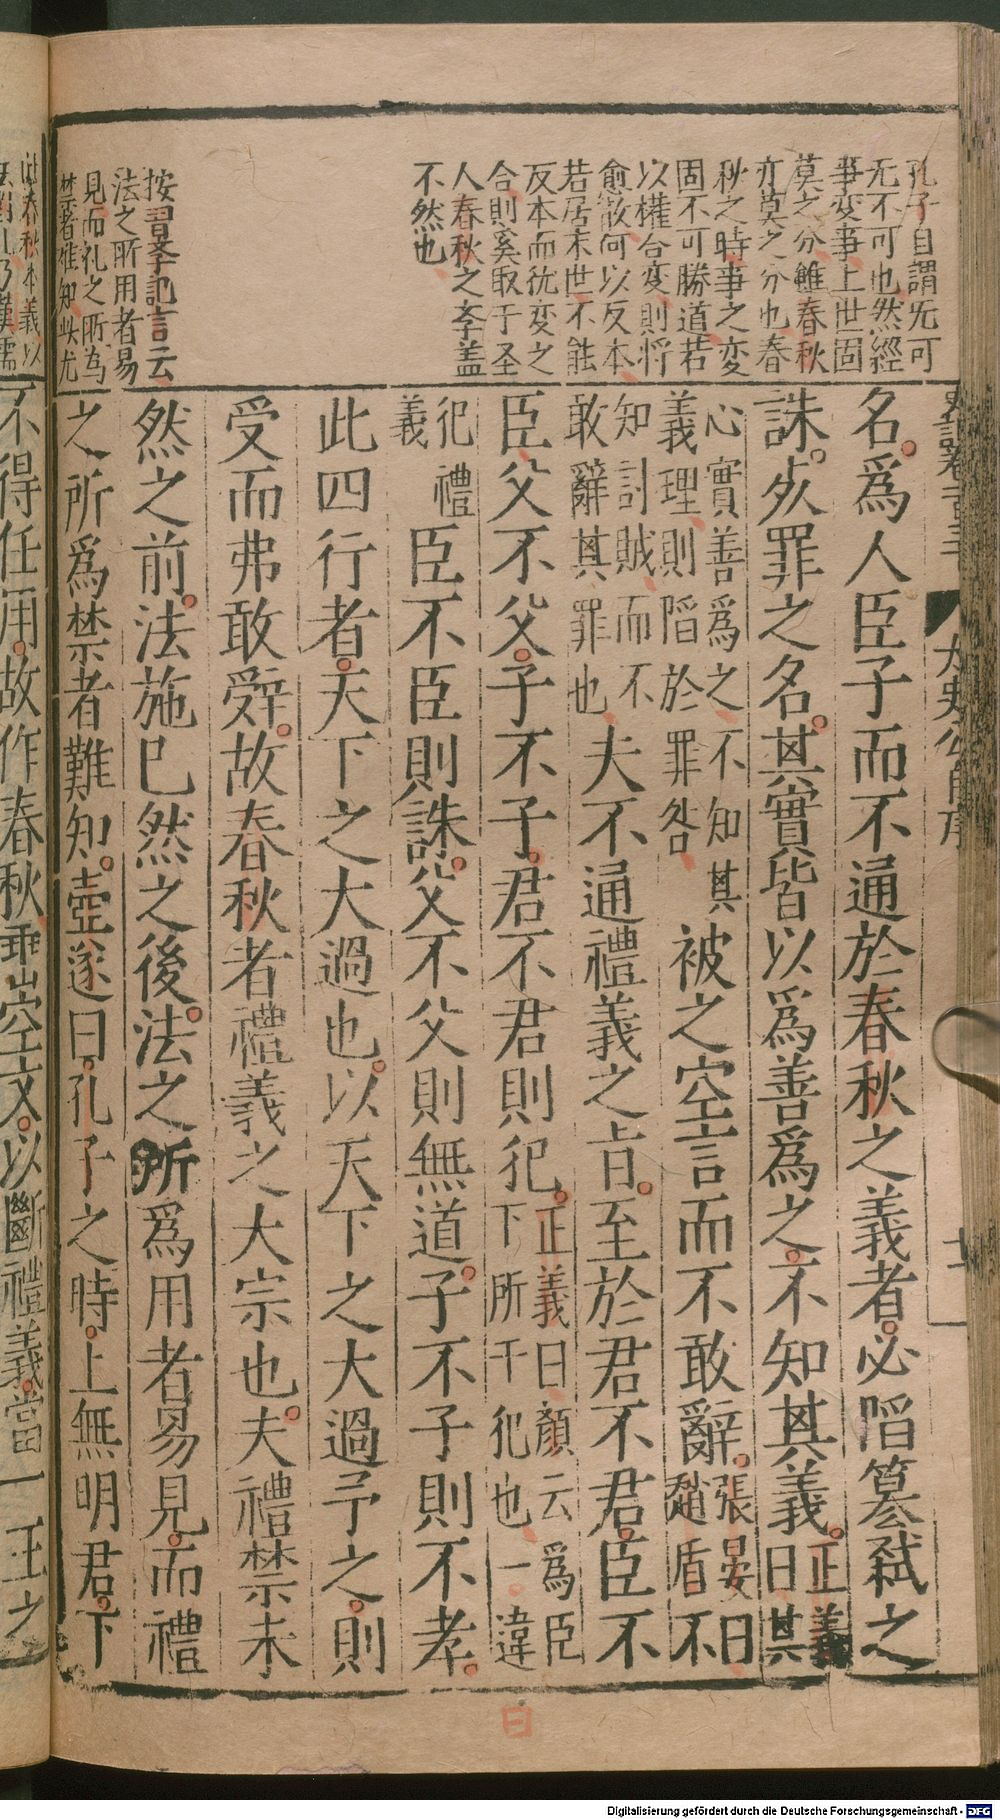 孔子自謂旡可
旡不可也然經
事変事上世固
莫之分雖春秋
亦莫之分也春
秋之時事之変
固不可勝道若
以權合変則将
愈散何以反本
若居末世不能
反本而徒変之
合則奚取于圣
人春秋之李盖
不然也
按習李記言云
法之所用者易
見而礼之所為
禁者难知此尤
名。爲人臣子而不通於春秋之義者。必陷簒弑之
誅。死罪之名。其實皆以爲善爲之。不知其義。正義曰其
心實善爲之不知其
義理則陷於罪咎
被之空言而不敢辭。張晏曰趙盾不
知討賊而不
敢辭其罪也
夫不通禮義之㫖。至於君不君。臣不
臣。父不父。子不子。君不君則犯。正義曰顏云爲臣下所干犯也一違
犯禮義
臣不臣則誅。父不父則無道。子不子則不孝。
此四行者。天下之大過也。以天下之大過予之。則
受而弗敢辤。故春秋者禮義之大宗也。夫禮禁未
然之前。法施已然之後。法之所爲用者易見。而禮
之所爲禁者難知。壺遂曰。孔子之時。上無明君。下
不得任用。故作春秋。垂空文。以斷禮義。當一王之
太史公自序
Digitalisierung gefördert durch die Deutsche Forschungsgemeinschaft - DFG